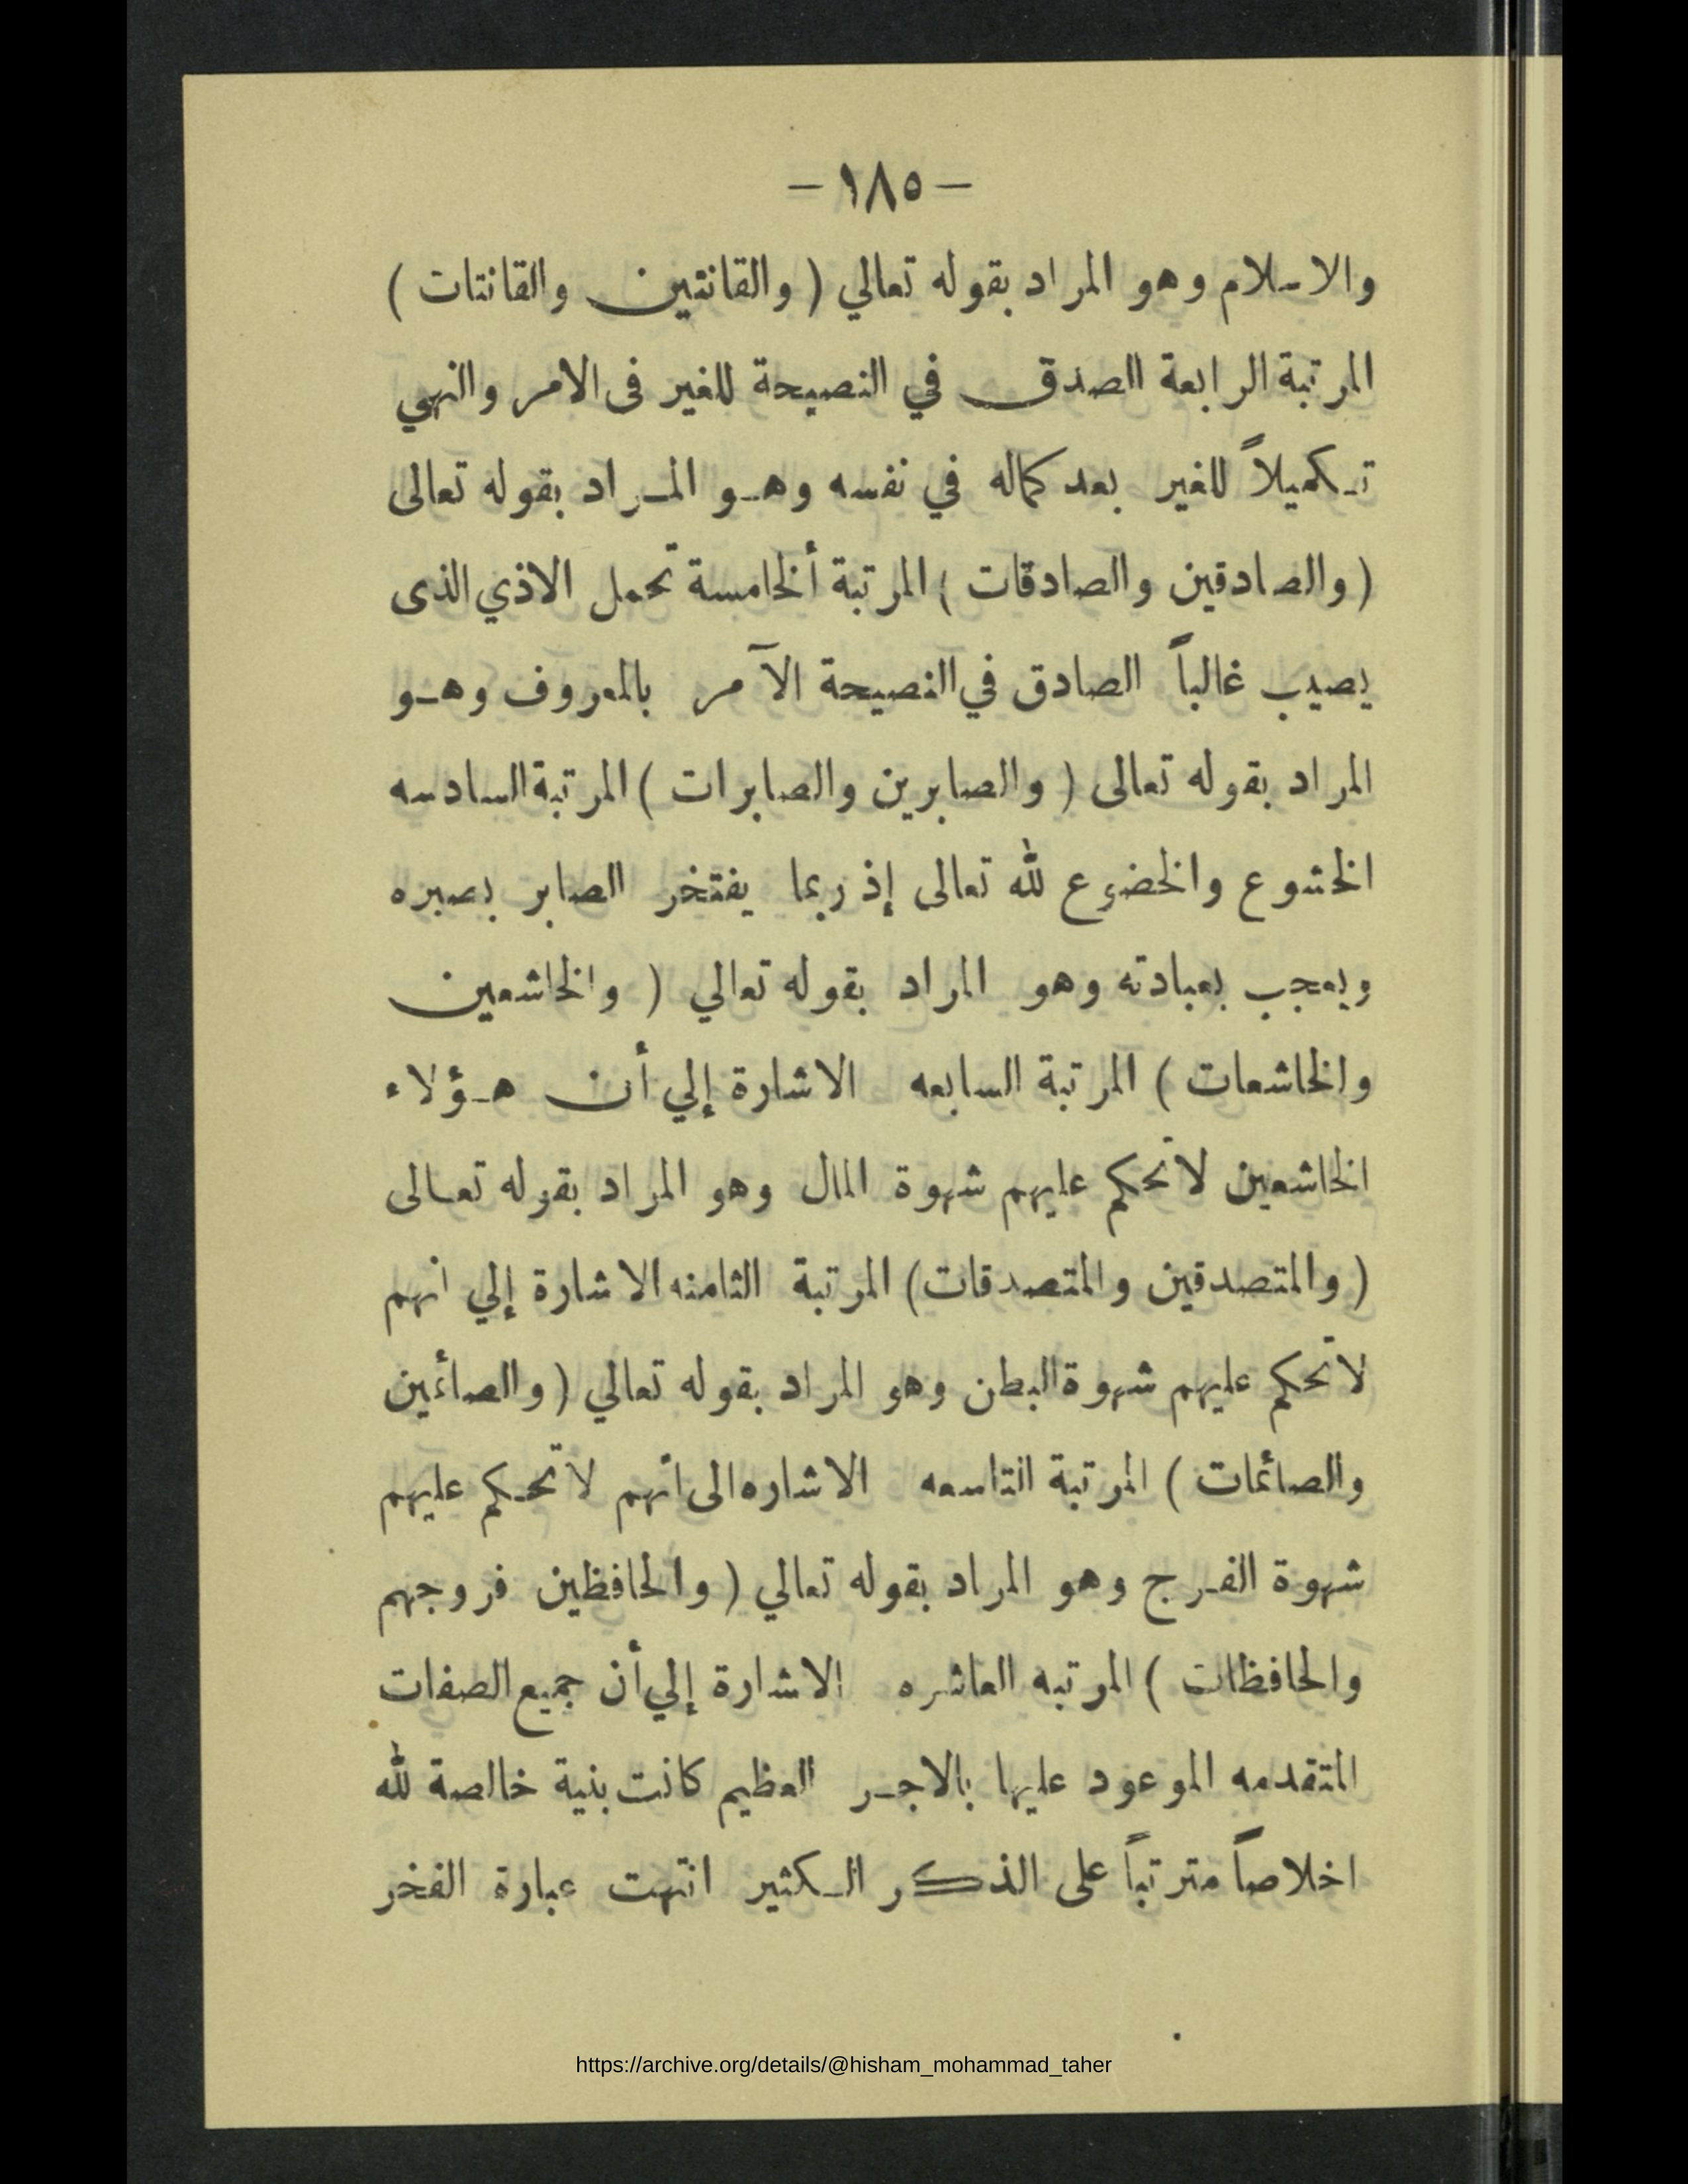 — ١٨٥ —
والاسلام وهو المراد بقوله تعالي ( والقانتين والقانتات )
المرتبة الرابعة الصدق في النصيحة للغير فى الامر والنهي
تـكميلاً للغير بعد كماله في نفسه وهـو المـراد بقوله تعالى
( والصادقين والصادقات ) المرتبة ألخامسة تحمل الاذي الذى
يصيب غالباً الصادق في النصيحة الآمر بالمعروف وهـو
المراد بقوله تعالى ( والصابرين والصابرات ) المرتبة السادسه
الخشوع والخضوع لله تعالى إذ ربما يفتخر الصابر بصبره
ويعجب بعبادته وهو المراد بقوله تعالي ( والخاشعين
والخاشعات ) المرتبة السابعه الاشارة إلي أن هـؤلاء
الخاشعين لاتحكم عليهم شهوة المال وهو المراد بقوله تعـالى
( والمتصدقين والمتصدقات ) المرتبة الثامنه الاشارة إلي انهم
لاتحكم عليهم شهوة البطن وهو المراد بقوله تعالي ( والصائمين
والصائمات ) المرتبة التاسعه الاشاره الى انهم لاتحـكم عليهم
شهوة الفـرج وهو المراد بقوله تعالي ( والحافظين فروجهم
والحافظات ) المرتبه العاشره الاشارة إلي أن جميع الصفات
المتقدمه الموعود عليها بالاجـر العظيم كانت بنية خالصة لله
اخلاصاً مترتباً على الذكر الـكثير انتهت عبارة الفخر
https://archive.org/details/@hisham_mohammad_taher